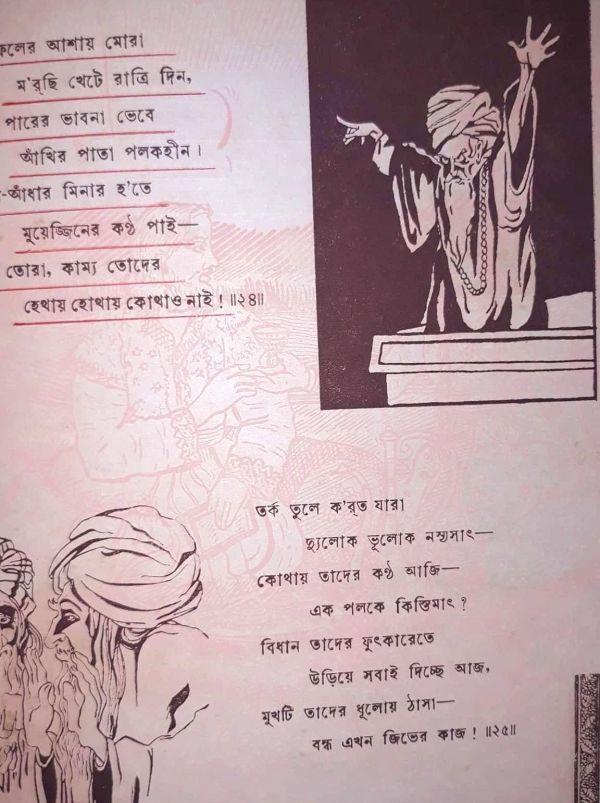 আশায় মোরা
ম'র্‌ছি খেটে রাত্রি দিন,
পারের ভাবনা ভেবে
আঁখির পাতা পলকহীন।
-আঁধার মিনার হ'তে
মুয়েজ্জিনের কণ্ঠ পাই—
তোরা, কাম্য তোদের
হেথায় হোথায় কোথাও নাই ! ॥২৪॥
তর্ক তুলে ক'র্‌ত যারা
দ্যুলোক ভূলোক নস্যসাৎ—
কোথায় তাদের কণ্ঠ আজি—
এক পলকে কিস্তিমাৎ ?
বিধান তাদের ফুৎকারেতে
উড়িয়ে সবাই দিচ্ছে আজ,
মুখটি তাদের ধূলোয় ঠাসা—
বন্ধ এখন জিভের কাজ ! ॥২৫॥